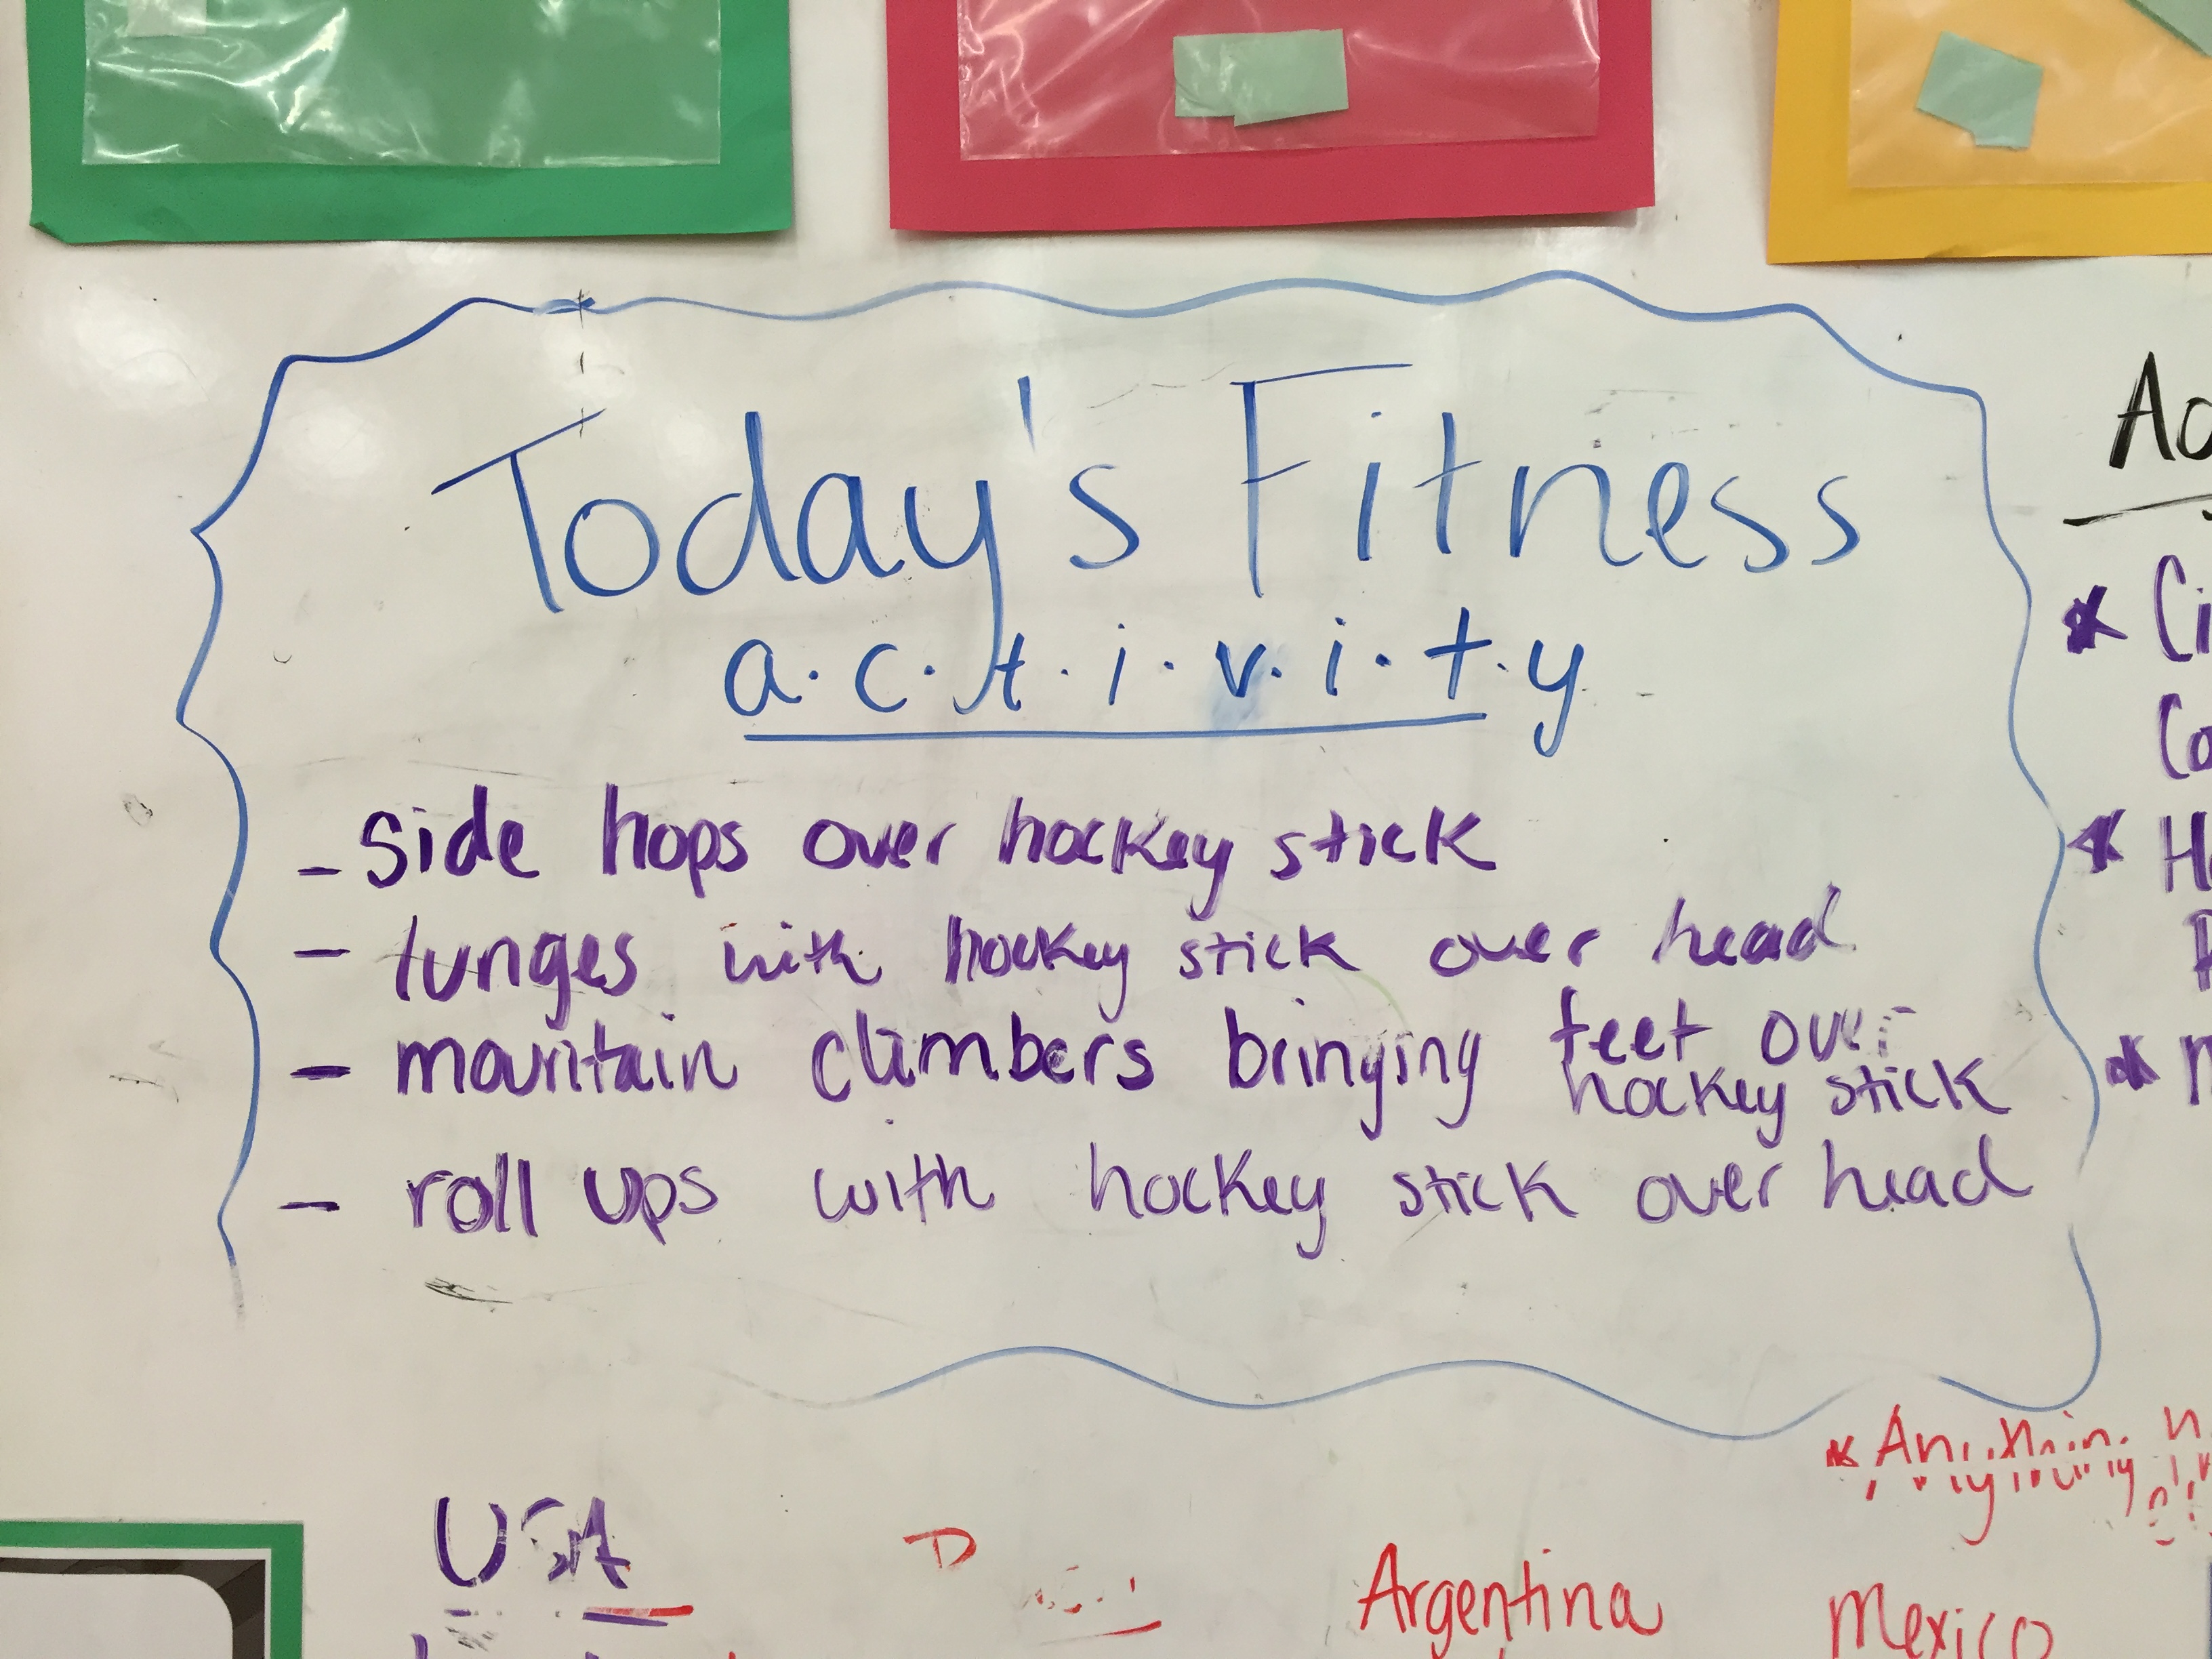 Today's Fitness
a.c.t.i.v.i.t.y
- side hops over hockey stick
- lunges with hockey stick over head
- mountain climbers bringing feet over
hockey stick
- roll ups with hockey stick over head
USA
Argentina
Mexico